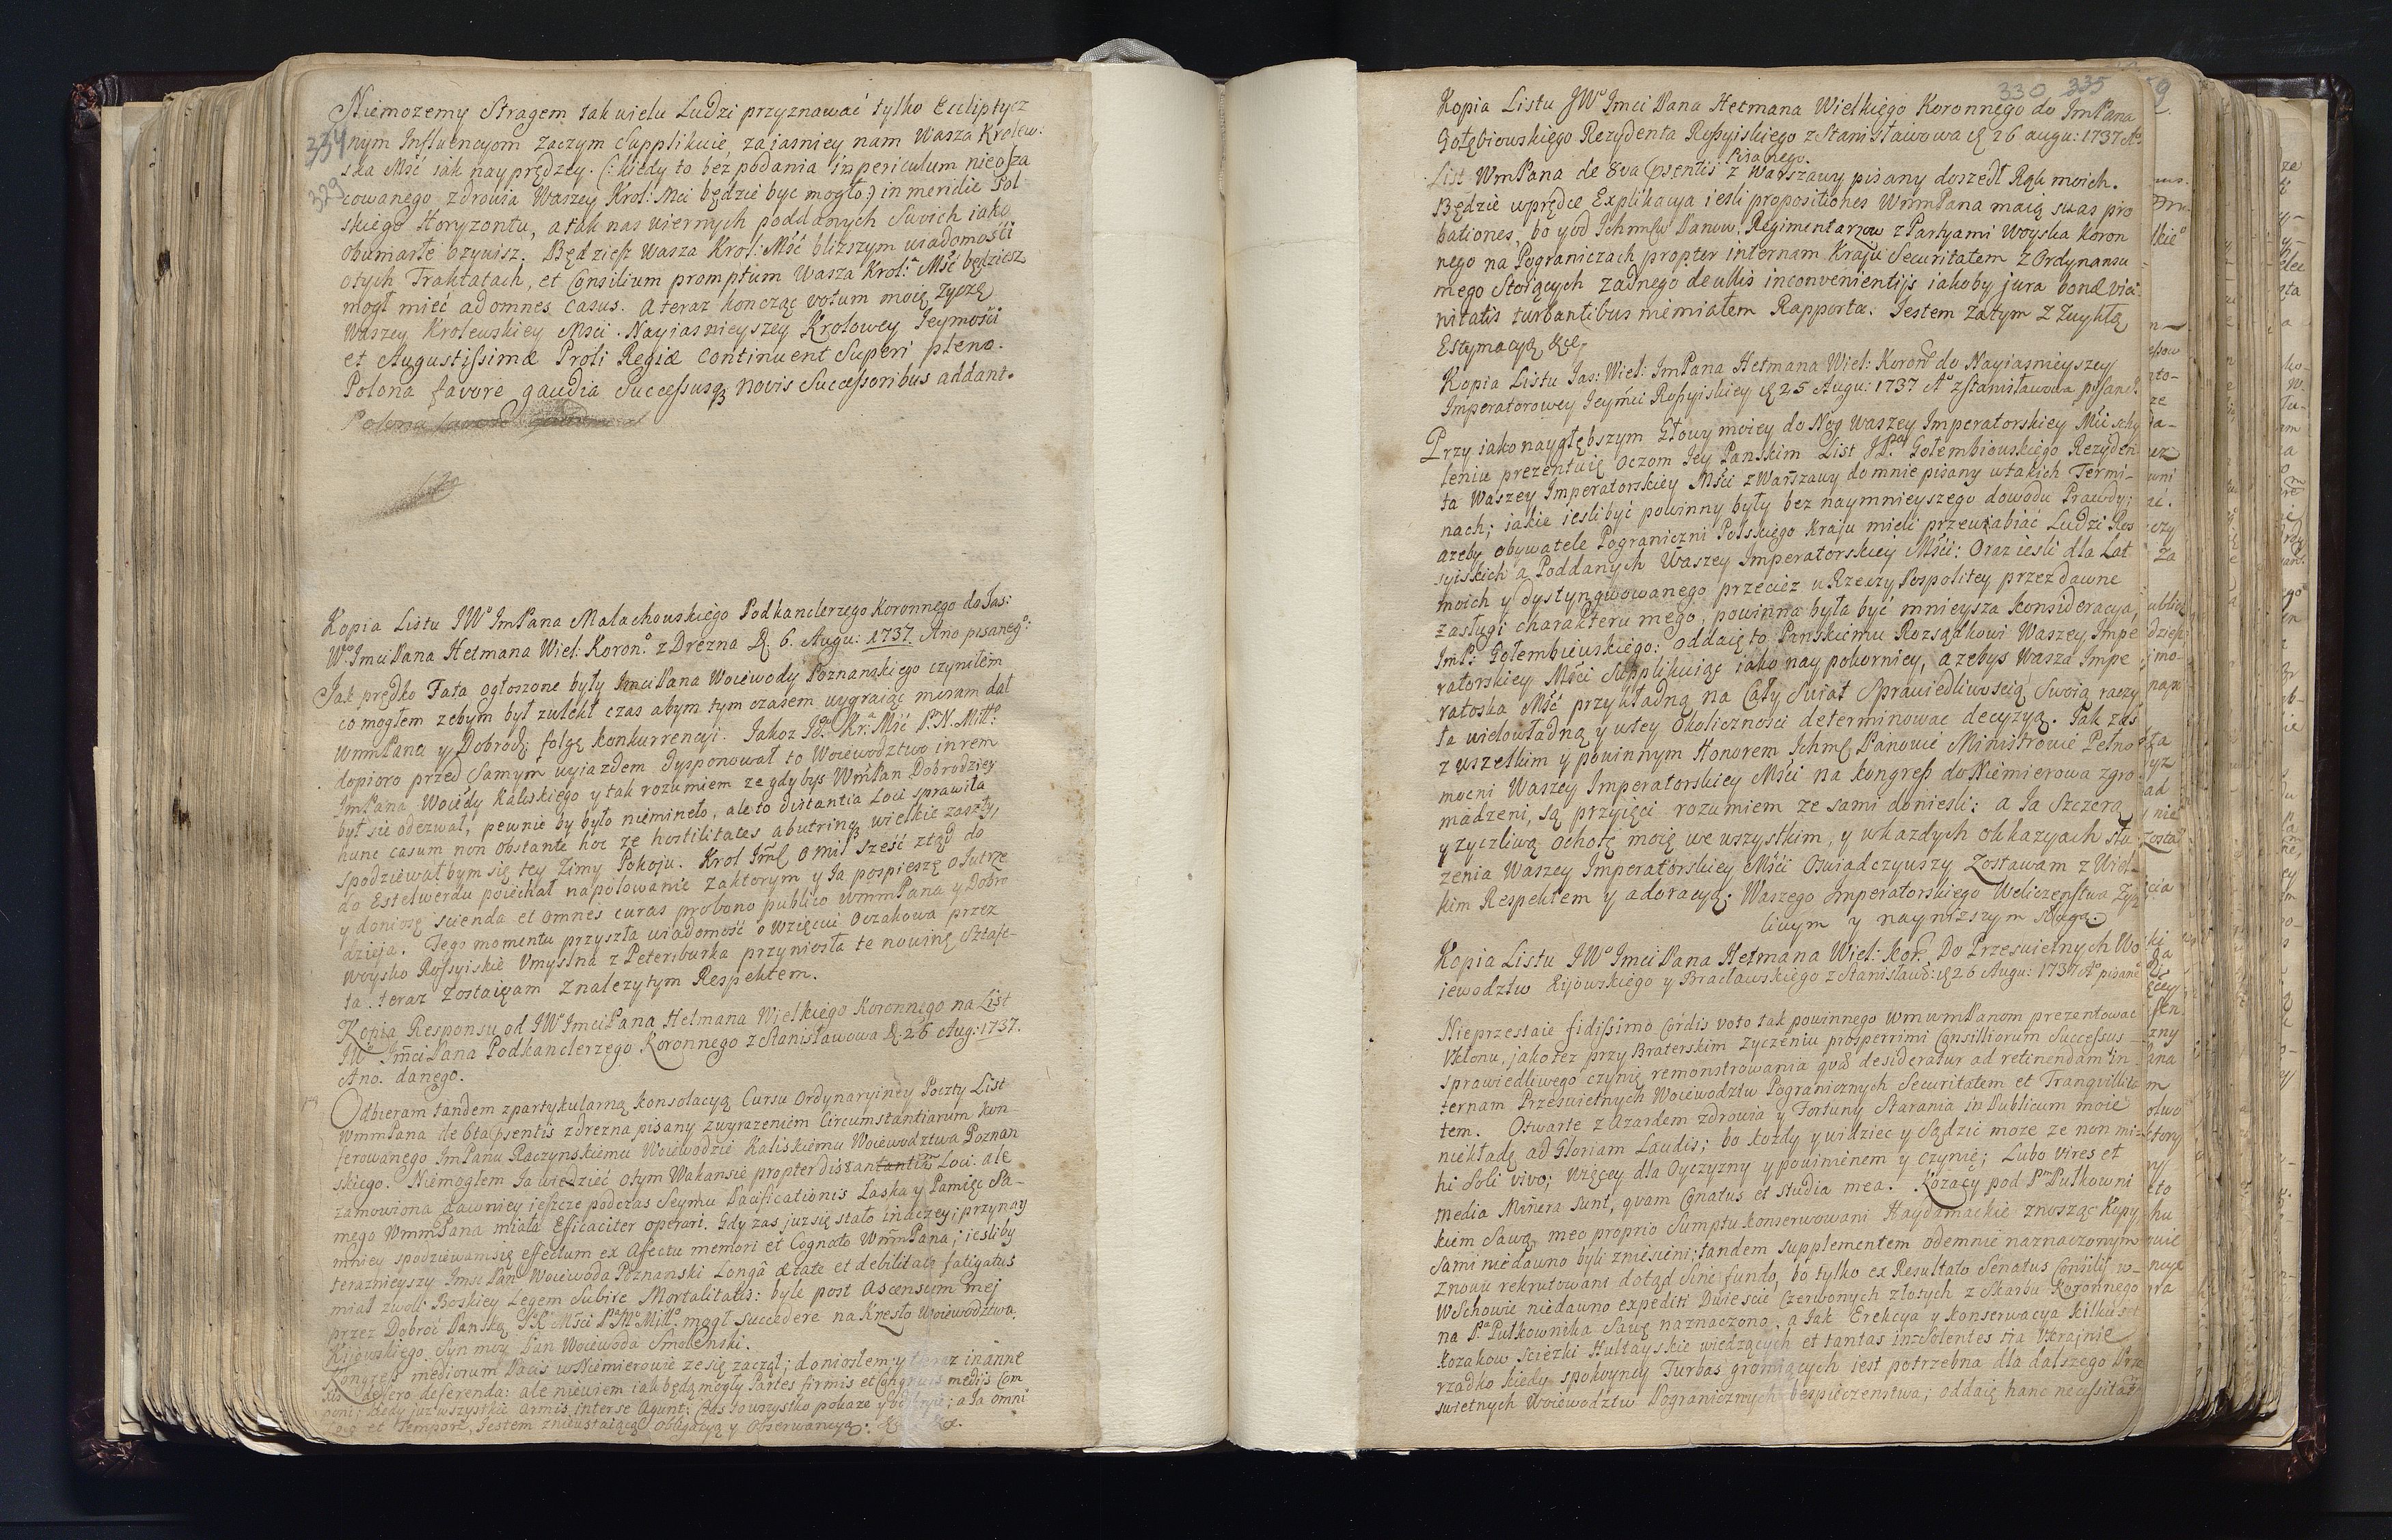 Niemozemy Stragem tak wielu Ludzi przyznawać tylko Ecliptycz
334 nym Influencyom zaczym Supplikuię, zaiasniey nam Wasza Krolew:
ska Mść iak nayprędzey. (: kiedy to bez podania in periculum nieosza
329 cowanego zdrowia Waszey Krol: Mci będzie byc mogło:) in meridie Pol
skiego Horyzontu, a tak nas wiernych poddanych Swoich iako
obumarłe ozywisz. Będziesz Wasza Krol: Mść blizszym wiadomości
otych Traktatach, et Consilium promptum Wasza Krol: Mść będziesz
mogł mieć ad omnes casus. A teraz koncząc votum moię zyczę
Waszey Krolewskiey Mści. Nayiasnieyszey Krolowey Jeymości
et Augustissimæ Proli Regiæ continuent Superi pleno.
Polona favore gaudia Successusq novis Successoribus addant.
Polona favore
Kopia Listu JWo ImPana Małachowskiego Podkanclerzego Koronnego do Jas:
Wo ImciPana Hetmana Wiel: Koron: z Drezna D. 6. Augu: 1737. Ano pisanego:
Jak prędko Fata ogłoszone były ImciPana Woiewody Poznanskiego czyniłem
co mogłem zebym był zwlekł czas abym tym czasem wygraiąc mieram dał
WmmPana y Dobrodz: folgę konkurrencyi. Jakoz Jo Kr: Mść P.N. Miłł:
dopioro przed Samym wyiazdem dysponował to Woiewodztwo in rem
ImPana Woiedy Kaliskiego y tak rozumiem ze gdybys WmPan Dobrodziey
był sie odezwał, pewnie by było nieminęło, ale to distantia Loci sprawiła
hunc casum non obstante hoc ze hostilitates ab utrinq wielkie zaszły,
spodziewał bym się tey Zimy Pokoju. Krol Jmć o mil sześć ztąd do
do Estelwerdu poiechał na polowanie za ktorym y Ja pospieszę o Jutrze
y doniosę scienda et omnes curas pro bono publico WmmPana y Dobro
dzieja. Tego momentu przyszła wiadomość o wzięciu Oczakowa przez
Woysko Rossyiskie Umyslna z Petersburka przyniosła te nowinę Sztafe-
ta teraz zostaięam z nalezytym Respektem.
Kopia Responsu od JWo ImciPana Hetmana Wielkiego Koronnego na List
JWo ImciPana Podkanclerzego Koronnego z Stanisławowa D: 26 Aug: 1737.
Ano. danego.
Odbieram tandem z partykularną konsolacyą Cursu Ordynaryiney Poczty List
WmmPana de 6ta Psentis z Drezna pisany z wyrazeniem Circumstantiarum kon
ferowanego ImPanu Raczynskiemu Woiewodzie Kaliskiemu Woiewodztwa Poznan
skiego. Niemogłem Ja wiedzieć otym Wakansie propter distantiam Loci. ale
zamowiona dawniey ieszcze podczas Seymu Pacificationis Łaska y Pamięc Sa-
mego WmmPana miała Efficaciter operari. Gdy zas juz się stało inaczey; przynay
mniey spodziewam się effectum ex Afectu memori et Cognato WmmPana; iesliby
teraznieyszy Imsc Pan Woiewoda Poznanski Longâ ætate et debilitate fatigatus
miał z woli Boskiey Legem Subire Mortalitatis: byle post Ascensum mej
przez Dobroć Panską JKMści PMMiłł: mogł Succedere na Krzesło Woiewodztwa
Kijowskiego Syn moy Pan Woiewoda Smolenski.
Kongress mediorum Pacis w Niemierowie ze się zaczął; doniosłem y teraz in anne
xis defero deferenda: ale niewiem iak będą mogły Partes firmis et Congruis medijs Com
poni; kiedy juz wszystkie armis inter se Agunt: Czas to wszystko pokaze y ; a Ja omni
Loco et Tempore, Jestem z nieustaiącą obligacyą y Obserwancyą. &c &c.
330 335
Kopia Listu JWo Imci Pana Hetmana Wielkiego Koronnego do ImPana
Gołębiowskiego Rezydenta Rossyiskiego z Stanisławowa D 26 augu: 1737 Ao
Pisanego.
List WmPana de 8va Psentis z Warszawy pisany doszedł Rąk moich.
Będzie wprędce Explikacya iesli propositiones WmmPana maią swas pro
bationes, bo y od Ichmsw Panow Regimentarzow z Partyami Woyska Koron
nego na Pograniczach propter internam Kraju Securitatem z Ordynansu
mego Stoiących zadnego de ullis inconvenientijs iakoby jura bonæ vici
nitatis turbantibus niemiałem Rapportu. Jestem zatym z Zwykłą
Estymacyą &c
Kopia Listu Jas: Wiel: ImPana Hetmana Wiel: Koron do Nayiasnieyszey
Imperatorowey Jeymci Rossyiskiey D 25 Augu: 1737 Ao z Stanisławowa pisane.
Przy iako naygłębszym Głowy moiey do Nog Waszey Imperatorskiey Mci schy
leniu prezentuię oczom Jey Panskim List JPa Gołembiowskiego Rezyden
ta Waszey Imperatorskiey Mści z Warszawy do mnie pisany w takich Termi-
nach; iakie iesli być powinny były bez naymnieyszego dowodu Prawdy;
azeby obywatele Pograniczni Polskiego Kraju mieli przewabiać Ludzi Ros
syiskich a Poddanych Waszey Imperatorskiey Mści: Oraz iesli dla Lat
moich y dystyngwowanego przeciez u Rzeczy Pospolitey przez dawne
zasługi charakteru mego, powinna była być mnieysza konsideracya,
ImP: Gołembiewskiego: oddaię to Panskiemu Rozsądkowi Waszey Impe
ratorskiey Mści Supplikuiąc iako naypokorniey, azebys Wasza Impe
ratorska Mść przykładną na Cały Swiat Sprawiedliwoscią Swoią raczy
ła wielowładną y w tey Okolicznosci determinowac decyzyą. Jak zas
z wszelkim y powinnym Honorem Ichmć Panowie Ministrowie Pełno
mocni Waszey Imperatorskiey Mści na kongress do Niemierowa zgro
madzeni, są przyięci rozumiem ze sami doniesli: a Ja Szczerą
y zyczliwą ochotę moię we wszystkim, y w kazdych okkazyach słu
zenia Waszey Imperatorskiey Mści Oswiadczywszy Zostawam z Wiel-
kim Respektem y adoracyą. Waszego Imperatorskiego Weliczenstwa Zycz
liwym y naynizszym sługą.
Kopia Listu JWo Imci Pana Hetmana Wiel: Kor: Do Przeswietnych Wo
iewodztw Kijowskiego y Bracławskiego z Stanisław: D 26 Augu: 1737 Ao pisane
Nieprzestaie fidissimo Cordis voto tak powinnego WmwmPanom prezentowac
Ukłonu, jako tez przy Braterskim zyczeniu prosperrimi Consilliorum Successus
sprawiedliwego czynię remonstrowania quæ desideratur ad retinendam in
ternam Przeswietnych Woiewodztw Pogranicznych Securitatem et Tranquillita
tem. Otwarte z azardem zdrowia y Fortuny Starania in Publicum moie
niekładę ad Gloriam Laudis; bo kozdy y widziec y Sądzić moze ze non mi-
hi soli vivo; więcey dla Oyczyzny y powinienem y czynię; Lubo vires et
media Minera sunt, quam Conatus et Studia mea. Kozacy pod Pm Pułkowni
kiem Sawą meo proprio sumptu konserwowani Haydamackie znosząc Kupy
Sami niedawno byli zniesieni; tandem supplementem odemnie naznaczonym
Znowu rekrutowani dotąd Sine fundo, bo tylko ex Resultato Senatus Consilij w
Wschowie niedawno expediti Dwiescie Czerwonych złotych z Skarbu Koronnego
na Pa Pułkownika Sawę naznaczono, a Jak Erekcya y konserwacya kilkuset
kozakow sciezki Hultayskie wiedzących et tantas insolentes na Ukrainie
rzadko kiedy spokoyney Turbas gromiących iest potrzebna dla dalszego Prze
swietnych Woiewodztw Pogranicznych bespieczenstwa; oddaię hanc necessitatem